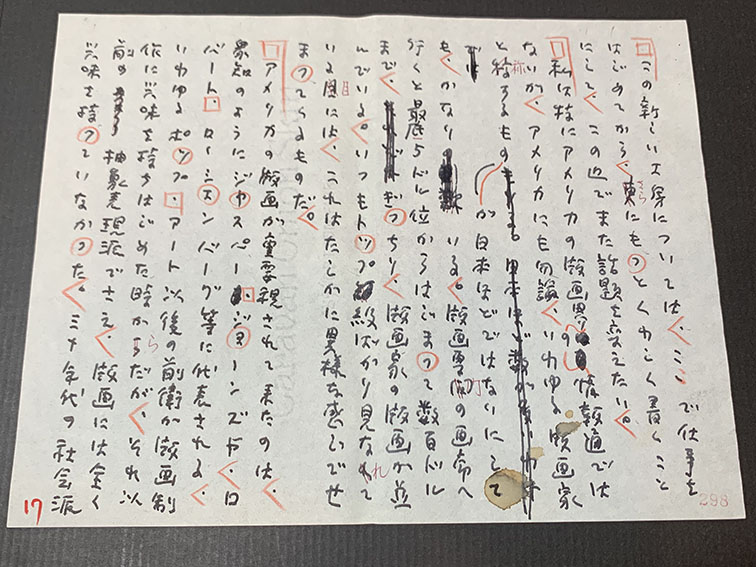 この新しい工房については、ここで仕事を
はじめてから、更にもっとくわしく書くこと
にして、この辺でまた話題を変えたい。
私は特にアメリカの版画界の情報通では
ないが、アメリカにも勿論、いわゆる版画家
と称するもの
が日本ほどではないにして
も、かなりいる。版画専門の画商へ
行くと最底5ドル位からはじまって数百ドル
まで、ぎっちり、版画家の版画が並
んでいる。いつもトップ級ばかり見なれて
いる目には、これはたしかに異様な感じでせ
まってくるものだ。
アメリカの版画が重要視されて来たのは、
象知のようにジャスパー・ジョーンズや、ロ
バート・ローシェンバーグ等に代表される、
いわゆるポップ・アート以後の前衛が版画制
作に興味を持ちはじめた時からだが、それ以
前の抽象表現派でさえ、版画には全く
興味を持っていなかった。三十年代の社会派
17
298